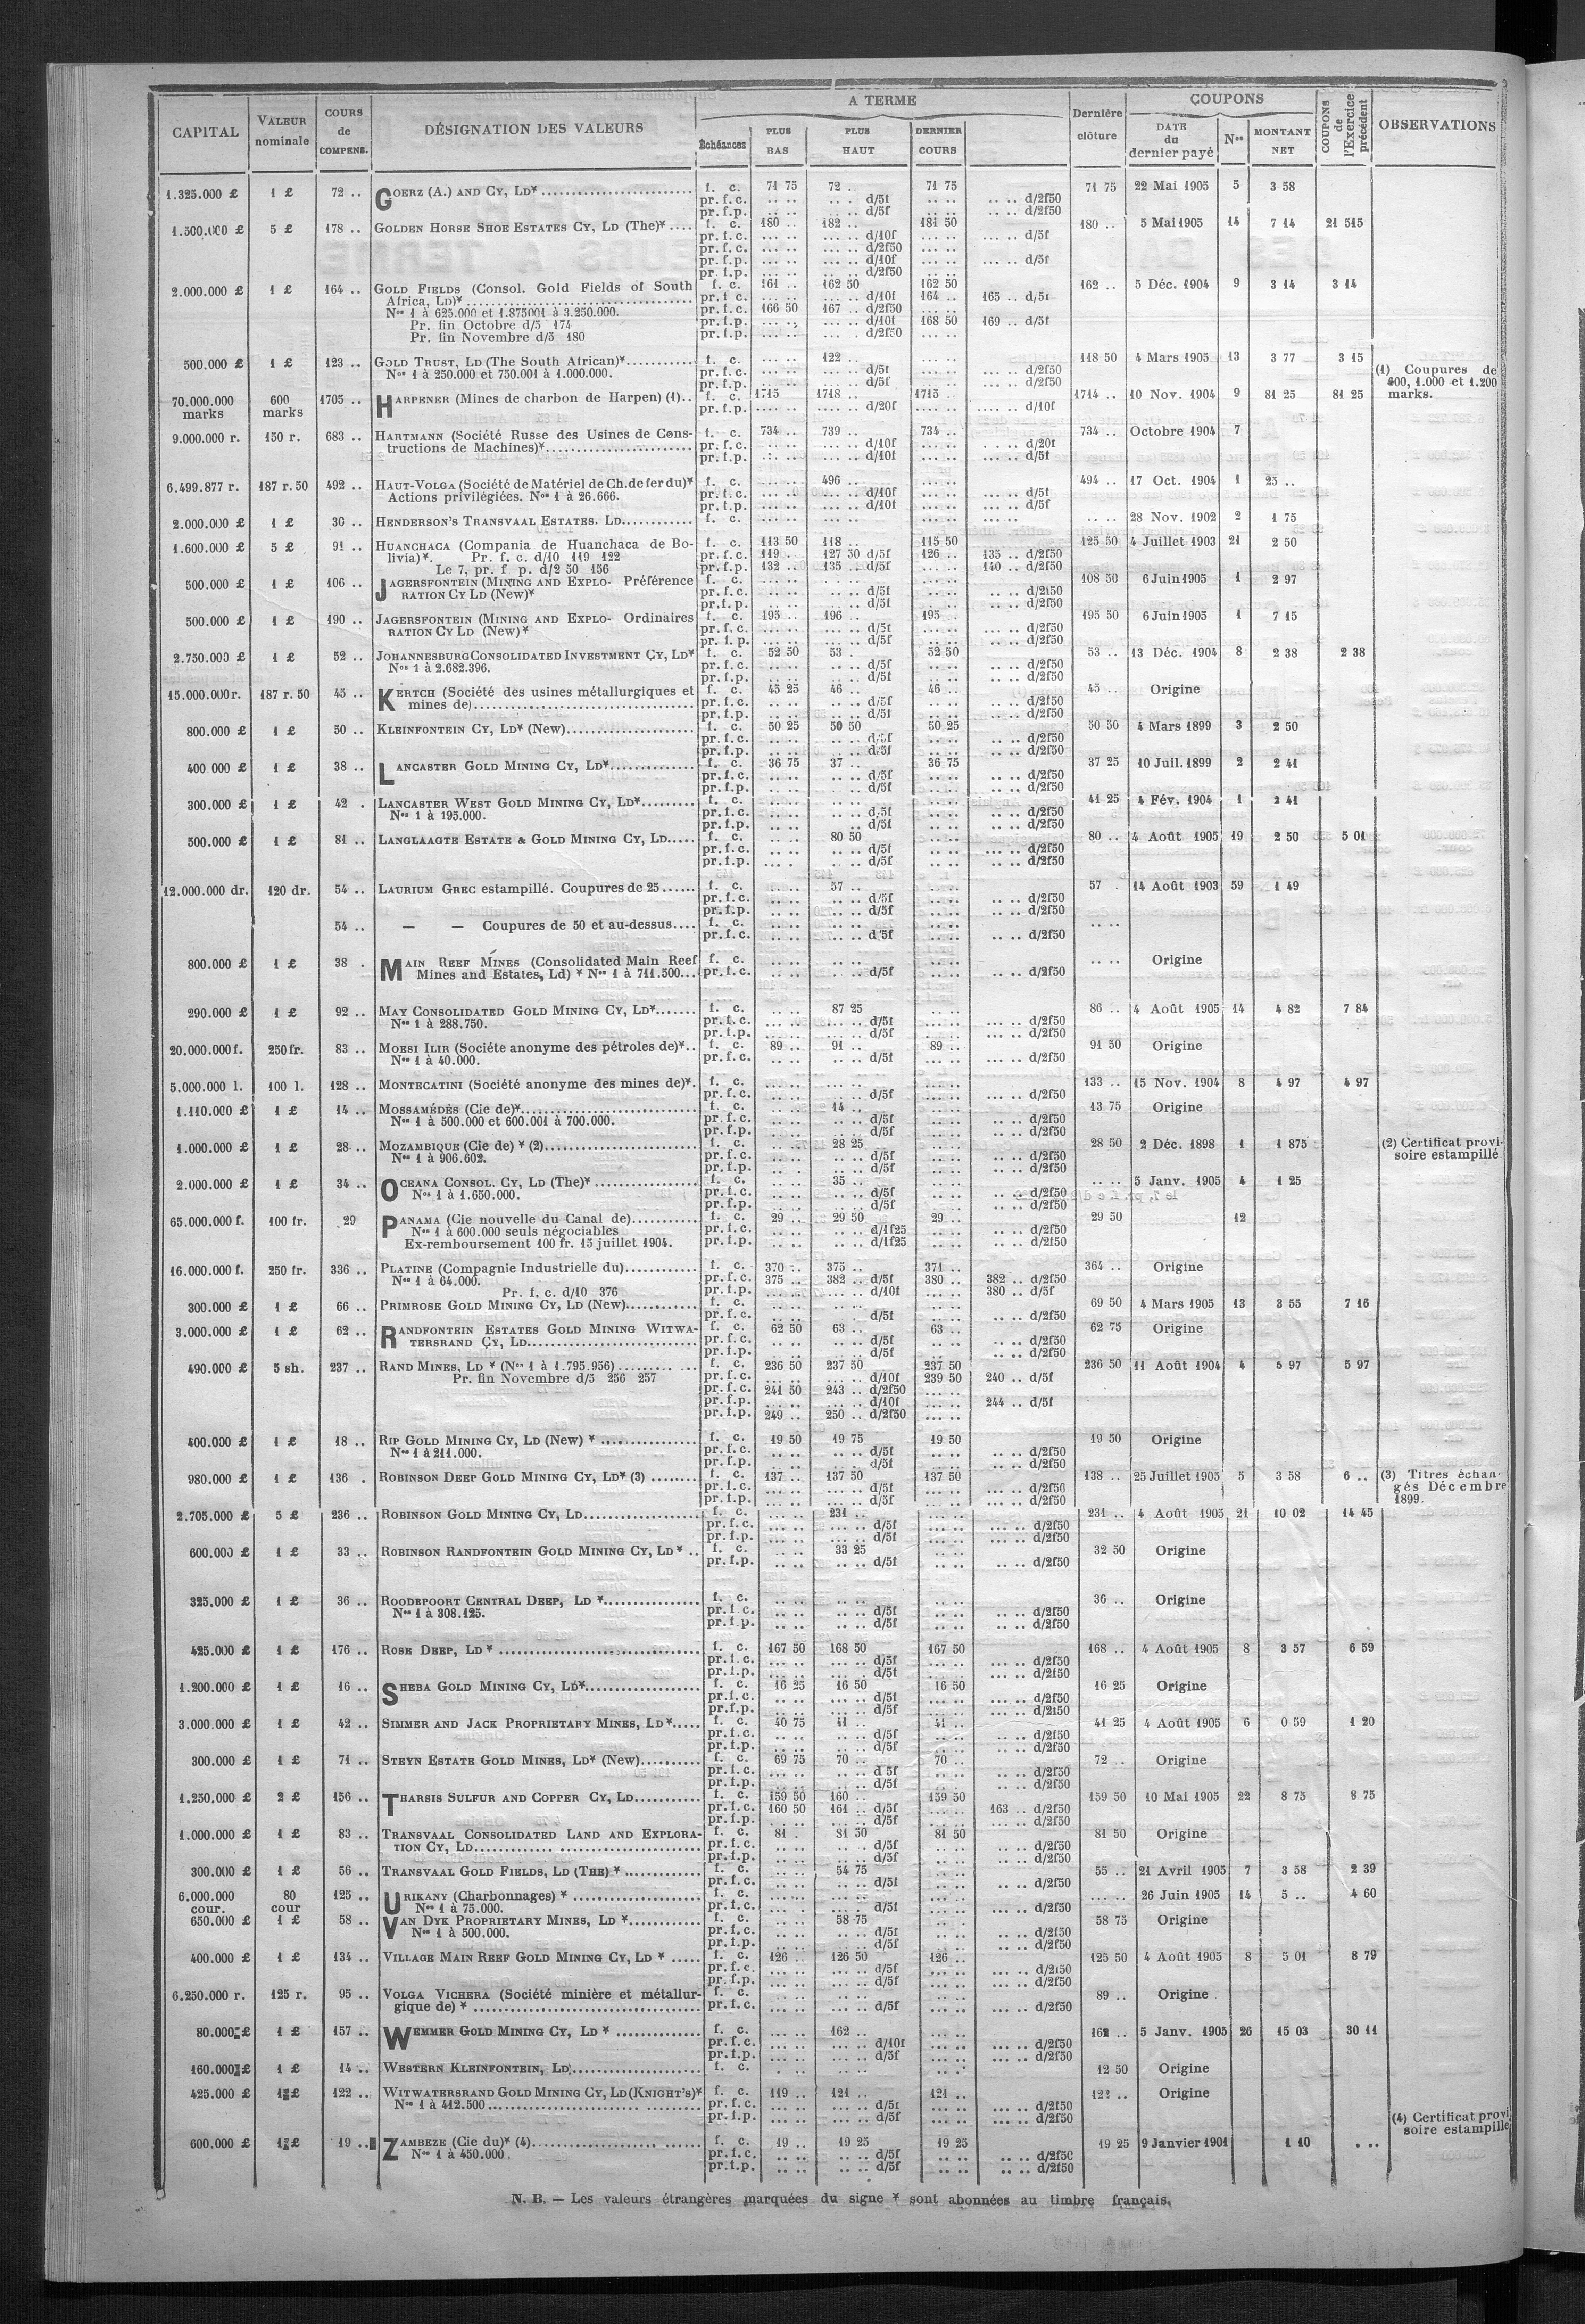 CAPITAL | VALEUR nominale | COURS de COMPENS. | DÉSIGNATION DES VALEURS | A TERME | Dernière clôture | COUPONS | COUPONS de l'Exercice précédent | OBSERVATIONS
Échéances | PLUS BAS | PLUS HAUT | DERNIER COURS | DATE du dernier payé | Nos | MONTANT NET
1.325.000 £ 1 £ 72 .. GOERZ (A.) AND CY, LD* f. c. 71 75 72 .. 71 75 71 75 22 Mai 1905 5 3 58
pr. f. c. .. .. .. . d/5f .. .. .. .. d/2f50
pr. f. p. .. .. .. .. d/5f .. .. .. .. d/2f50
1.500.000 £ 5 £ 178 .. GOLDEN HORSE SHOE ESTATES CY, LD (The)* .... f. c. 180 .. 182 .. 181 50 180 .. 5 Mai 1905 14 7 14 21 515
pr. f. c. ... .. ... .. d/10f ... .. ... .. d/5f
pr. f. c. ... .. ... .. d/2f50 ... ..
pr. f. p. ... .. ... .. d/10f ... .. ... .. d/5f
pr. f. p. ... .. ... .. d/2f50 .. ..
2.000.000 £ 1 £ 164 .. GOLD FIELDS (Consol. Gold Fields of South f. c. 161 .. 162 50 162 50 162 .. 5 Déc. 1904 9 3 14 3 14
Africa, LD)* pr. f. c. ... .. ... .. d/10f 164 .. 165 .. d/5f
Nos 1 à 625.000 et 1.875001 à 3.250.000. pr. f. c. 166 50 167 .. d/2f50 ... ..
Pr. fin Octobre d/5 174 pr. f. p. ... .. ... .. d/10f 168 50 169 .. d/5f
Pr. fin Novembre d/5 180 pr. f. p. ... .. ... .. d/2f50 ... ..
500.000 £ 1 £ 123 .. GOLD TRUST, LD (The South African)* f. c. ... .. 122 .. ... .. 118 50 4 Mars 1905 13 3 77 3 15
Nos 1 à 250.000 et 750.001 à 1.000.000. pr. f. c. ... .. ... .. d/5f ... .. ... .. d/2f50 (1) Coupures de
pr. f. p. ... .. ... .. d/5f ... .. ... .. d/2f50 600, 1.000 et 1.200
70.000.000 marks 600 marks 1705 .. HARPENER (Mines de charbon de Harpen) (1).. f. c. 1715 1718 .. 1715 .. 1714 .. 10 Nov. 1904 9 81 25 81 25 marks.
pr. f. p. .... .. .... .. d/20f .... .. .... .. d/10f
9.000.000 r. 150 r. 683 .. HARTMANN (Société Russe des Usines de Cons- f. c. 734 .. 739 .. 734 .. 734 .. Octobre 1904 7
tructions de Machines)* pr. f. c. ... .. ... .. d/10f ... .. ... .. d/20f
pr. f. p. ... .. ... .. d/10f ... .. ... .. d/5f
6.499.877 r. 187 r. 50 492 .. HAUT-VOLGA (Société de Matériel de Ch. de fer du)* f. c. ... .. 496 .. ... .. 494 .. 17 Oct. 1904 1 25 ..
Actions privilégiées. Nos 1 à 26.666. pr. f. c. ... .. ... .. d/10f ... .. ... .. d/5f
pr. f. p. ... .. ... .. d/10f ... .. ... .. d/5f
2.000.000 £ 1 £ 30 .. HENDERSON'S TRANSVAAL ESTATES. LD f. c. ... .. ... .. ... .. .. .. 28 Nov. 1902 2 1 75
1.600.000 £ 5 £ 91 .. HUANCHACA (Compania de Huanchaca de Bo- f. c. 113 50 118 .. 115 50 125 50 4 Juillet 1903 21 2 50
livia)*. Pr. f. c. d/10 119 122 pr. f. c. 119 .. 127 50 d/5f 126 .. 135 .. d/2f50
Le 7, pr. f p. d/2 50 156 pr. f. p. 132 .. 135 .. d/5f 140 .. d/2f50
500.000 £ 1 £ 106 .. JAGERSFONTEIN (MINING AND EXPLO- Préférence f. c. ... .. ... .. ... .. 108 50 6 Juin 1905 1 2 97
RATION CY LD (New)* pr. f. c. ... .. ... .. d/5f ... .. ... .. d/2f50
pr. f. p. ... .. ... .. d/5f ... .. ... .. d/2f50
500.000 £ 1 £ 190 .. JAGERSFONTEIN (MINING AND EXPLO- Ordinaires f. c. 195 .. 196 .. 195 .. 195 50 6 Juin 1905 1 7 15
RATION CY LD (New)* pr. f. c. ... .. ... .. d/5f ... .. ... .. d/2f50
pr. f. p. ... .. ... .. d/5f ... .. ... .. d/2f50
2.750.000 £ 1 £ 52 .. JOHANNESBURG CONSOLIDATED INVESTMENT CY, LD* f. c. 52 50 53 . 52 50 53 .. 13 Déc. 1904 8 2 38 2 38
Nos 1 à 2.682.396. pr. f. c. .. .. .. .. d/5f .. .. .. .. d/2f50
pr. f. p. .. .. .. .. d/5f .. .. .. .. d/2f50
15.000.000 r. 187 r. 50 45 .. KERTCH (Société des usines métallurgiques et f. c. 45 25 46 .. 46 .. 45 .. Origine
mines de) pr. f. c. .. .. .. .. d/5f .. .. .. .. d/2f50
pr. f. p. .. .. .. .. d/5f .. .. .. .. d/2f50
800.000 £ 1 £ 50 .. KLEINFONTEIN CY, LD* (New) f. c. 50 25 50 50 50 25 50 50 4 Mars 1899 3 2 50
pr. f. c. .. .. .. .. d/5f .. .. .. .. d/2f50
pr. f. p. .. .. .. .. d/5f .. .. .. .. d/2f50
400 000 £ 1 £ 38 .. LANCASTER GOLD MINING CY, LD* f. c. 36 75 37 .. 36 75 37 25 10 Juil. 1899 2 2 41
pr. f. c. .. .. .. .. d/5f .. .. .. .. d/2f50
pr. f. p. .. .. .. .. d/5f .. .. .. .. d/2f50
300.000 £ 1 £ 42 . LANCASTER WEST GOLD MINING CY, LD* f. c. 41 25 4 Fév. 1904 1 2 41
Nos 1 à 195.000. pr. f. c. .. .. .. d/5f .. .. .. .. d/2f50
pr. f. p. .. .. .. d/5f .. .. .. .. d/2f50
500.000 £ 1 £ 81 .. LANGLAAGTE ESTATE & GOLD MINING CY, LD f. c. .. .. 80 50 .. .. 80 .. 4 Août 1905 19 2 50 5 01
pr. f. c. .. .. .. .. d/5f .. .. ... .. d/2f50
pr. f. p. ... . .. .. d/5f .. .. .. .. d/2f50
12.000.000 dr. 120 dr. 54 .. LAURIUM GREC estampillé. Coupures de 25 f. c. .. .. 57 .. .. .. 57 . 14 Août 1903 59 1 49
pr. f. c. .. .. .. .. d/5f .. .. .. .. d/2f50
pr. f. p. .. .. .. .. d/5f .. .. .. .. d/2f50
54 .. — — Coupures de 50 et au-dessus f. c. .. .. .. .. .. .. .. ..
pr. f. c. .. .. .. .. d/5f .. .. .. .. d/2f50
800.000 £ 1 £ 38 . MAIN REEF MINES (Consolidated Main Reef f. c. .. .. .. .. .. .. .. .. Origine
Mines and Estates, Ld) * Nos 1 à 711.500 pr. f. c. .. .. .. .. d/5f .. .. .. .. d/2f50
290.000 £ 1 £ 92 .. MAY CONSOLIDATED GOLD MINING CY, LD* f. c. .. .. 87 25 .. .. 86 .. 4 Août 1905 14 4 82 7 84
Nos 1 à 288.750. pr. f. c. ... .. ... .. d/5f ... .. ... .. d/2f50
pr. f. p. ... .. ... .. d/5f ... .. ... .. d/2f50
20.000.000 f. 250 fr. 83 .. MOESI ILIR (Sociéte anonyme des pétroles de)*.. f. c. 89 .. 91 .. 89 .. 91 50 Origine
Nos 1 à 40.000. pr. f. c. .. .. .. .. d/5f .. .. ... .. d/2f50
5.000.000 l. 100 l. 128 .. MONTECATINI (Société anonyme des mines de)*. f. c. ... .. ... .. ... .. 133 .. 15 Nov. 1904 8 4 97 4 97
pr. f. c. ... .. ... .. d/5f ... .. ... .. d/2f50
1.110.000 £ 1 £ 14 .. MOSSAMÉDÈS (Cie de)* f. c. .. .. 14 .. .. .. 13 75 Origine
Nos 1 à 500.000 et 600.001 à 700.000. pr. f. c. .. .. .. .. d/5f .. .. .. .. d/2f50
pr. f. p. .. .. .. .. d/5f .. .. .. .. d/2f50
1.000.000 £ 1 £ 28 .. MOZAMBIQUE (Cie de) * (2) f. c. .. .. 28 25 .. .. 28 50 2 Déc. 1898 1 1 875 (2) Certificat provi-
Nos 1 à 906.602. pr. f. c. .. .. .. .. d/5f .. .. .. .. d/2f50 soire estampillé
pr. f. p. .. . .. .. d/5f .. .. .. .. d/2f50
2.000.000 £ 1 £ 34 .. OCEANA CONSOL. CY, LD (The)* f. c. .. .. 35 .. .. .. .. .. 5 Janv. 1905 4 1 25
Nos 1 à 1.650.000. pr. f. c. .. .. .. .. d/5f .. .. .. .. d/2f50
pr. f. p. .. .. .. .. d/5f .. .. .. .. d/2f50
65.000.000 f. 100 fr. 29 PANAMA (Cie nouvelle du Canal de) f. c. 29 .. 29 50 29 .. 29 50 12
Nos 1 à 600.000 seuls négociables pr. f. c. .. .. .. .. d/1f25 .. .. .. .. d/2f50
Ex-remboursement 100 fr. 15 juillet 1904. pr. f. p. .. .. .. .. d/1f25 .. .. .. .. d/2f50
16.000.000 f. 250 fr. 336 .. PLATINE (Compagnie Industrielle du) f. c. 370 .. 375 .. 371 .. 364 .. Origine
Nos 1 à 64.000. pr. f. c. 375 .. 382 .. d/5f 380 .. 382 .. d/2f50
Pr. f. c. d/10 376 pr. f. p. ... .. ... .. d/10f 380 .. d/5f
300.000 £ 1 £ 66 .. PRIMROSE GOLD MINING CY, LD (New) f. c. .. .. .. .. .. .. 69 50 4 Mars 1905 13 3 55 7 16
pr. f. c. .. .. d/5f .. .. .. .. d/2f50
3.000.000 £ 1 £ 62 .. RANDFONTEIN ESTATES GOLD MINING WITWA- f. c. 62 50 63 .. 63 .. 62 75 Origine
TERSRAND CY, LD pr. f. c. .. .. .. .. d/5f .. .. .. .. d/2f50
pr. f. p. .. .. .. .. d/5f .. .. .. .. d/2f50
490.000 £ 5 sh. 237 .. RAND MINES, LD * (Nos 1 à 1.795.956) f. c. 236 50 237 50 237 50 236 50 11 Août 1904 4 5 97 5 97
Pr. fin Novembre d/5 256 257 pr. f. c. ... .. ... .. d/10f 239 50 240 .. d/5f
pr. f. c. 241 50 243 .. d/2f50 ... ..
pr. f. p. ... .. ... .. d/10f ... .. 244 .. d/5f
pr. f. p. 249 .. 250 .. d/2f50 ... ..
400.000 £ 1 £ 18 .. RIP GOLD MINING CY, LD (New) * f. c. 19 50 19 75 19 50 19 50 Origine
Nos 1 à 211.000. pr. f. c. .. .. .. .. d/5f .. .. .. .. d/2f50
pr. f. p. .. .. .. .. d/5f .. .. .. .. d/2f50
980.000 £ 1 £ 136 . ROBINSON DEEP GOLD MINING CY, LD* (3) f. c. 137 .. 137 50 137 50 138 .. 25 Juillet 1905 5 3 58 6 .. (3) Titres échan-
pr. f. c. ... .. ... .. d/5f ... .. ... .. d/2f50 gés Décembre
pr. f. p. ... .. ... .. d/5f ... .. ... .. d/2f50 1899.
2.705.000 £ 5 £ 236 .. ROBINSON GOLD MINING CY, LD f. c. ... .. 231 .. ... .. 231 .. 4 Août 1905 21 10 02 14 45
pr. f. c. ... .. ... .. d/5f ... .. ... .. d/2f50
pr. f. p. ... .. ... .. d/5f ... .. ... .. d/2f50
600.000 £ 1 £ 33 .. ROBINSON RANDFONTEIN GOLD MINING CY, LD * .. f. c. .. .. 33 25 .. .. 32 50 Origine
pr. f. p. .. .. .. .. d/5f .. .. .. .. d/2f50
325.000 £ 1 £ 36 .. ROODEPOORT CENTRAL DEEP, LD * f. c. .. .. .. .. .. .. 36 .. Origine
Nos 1 à 308.125. pr. f. c. .. .. .. .. d/5f .. .. .. .. d/2f50
pr. f. p. .. .. .. .. d/5f .. .. .. .. d/2f50
425.000 £ 1 £ 176 .. ROSE DEEP, LD * f. c. 167 50 168 50 167 50 168 .. 4 Août 1905 8 3 57 6 59
pr. f. c. ... .. ... .. d/5f ... .. ... .. d/2f50
pr. f. p. ... .. ... . d/5f ... .. ... .. d/2f50
1.200.000 £ 1 £ 16 .. SHEBA GOLD MINING CY, LD* f. c. 16 25 16 50 16 50 16 25 Origine
pr. f. c. .. .. .. .. d/5f .. .. .. .. d/2f50
pr. f. p. .. .. .. .. d/5f .. .. .. .. d/2f50
3.000.000 £ 1 £ 42 .. SIMMER AND JACK PROPRIETARY MINES, LD* f. c. 40 75 41 .. 41 .. 41 25 4 Août 1905 6 0 59 1 20
pr. f. c. .. .. .. .. d/5f .. .. .. .. d/2f50
pr. f. p. .. .. .. .. d/5f .. .. .. .. d/2f50
300.000 £ 1 £ 71 .. STEYN ESTATE GOLD MINES, LD* (New) f. c. 69 75 70 .. 70 .. 72 .. Origine
pr. f. c. ... .. .. .. d 5f .. .. .. .. d/2f50
pr. f. p. .. .. .. .. d/5f .. .. .. .. d/2f50
1.250.000 £ 2 £ 156 .. THARSIS SULFUR AND COPPER CY, LD f. c. 159 50 160 .. 159 50 159 50 10 Mai 1905 22 8 75 8 75
pr. f. c. 160 50 161 .. d/5f ... .. 163 .. d/2f50
pr. f. p. ... .. ... .. d/5f ... .. ... .. d/2f50
1.000.000 £ 1 £ 83 .. TRANSVAAL CONSOLIDATED LAND AND EXPLORA- f. c. 81 . 81 50 81 50 81 50 Origine
TION CY, LD pr. f. c. .. .. .. .. d/5f .. .. .. .. d/2f50
pr. f. p. .. .. .. .. d/5f .. .. .. .. d/2f50
300.000 £ 1 £ 56 .. TRANSVAAL GOLD FIELDS, LD (THE) * f. c. .. .. 54 75 .. .. 55 .. 21 Avril 1905 7 3 58 2 39
pr. f. c. .. .. .. .. d/5f .. .. .. .. d/2f50
6.000.000 cour. 80 cour 125 .. URIKANY (Charbonnages) * f. c. ... .. ... .. ... .. ... .. 26 Juin 1905 14 5 .. 4 60
Nos 1 à 75.000. pr. f. c. ... .. ... . d/5f ... .. ... .. d/2f50
650.000 £ 1 £ 58 .. VAN DYK PROPRIETARY MINES, LD * f. c. .. .. 58 75 .. .. 58 75 Origine
Nos 1 à 500.000. pr. f. c. .. .. .. .. d/5f .. .. .. .. d/2f50
pr. f. p. .. .. .. .. d/5f .. .. .. .. d/2f50
400.000 £ 1 £ 134 .. VILLAGE MAIN REEF GOLD MINING CY, LD * f. c. 126 .. 126 50 126 .. 125 50 4 Août 1905 8 5 01 8 79
pr. f. c. ... .. ... .. d/5f ... .. ... .. d/2f50
pr. f. p. ... .. ... .. d/5f ... .. ... .. d/2f50
6.250.000 r. 125 r. 95 .. VOLGA VICHERA (Société minière et métallur- f. c. 89 .. Origine
gique de) * pr. f. c. ... .. ... .. d/5f ... .. ... .. d/2f50
80.000 £ 1 £ 157 .. WEMMER GOLD MINING CY, LD * f. c. ... .. 162 .. ... .. 162 .. 5 Janv. 1905 26 15 03 30 11
pr. f. c. ... .. ... .. d/10f ... .. ... .. d/2f50
pr. f. p. ... .. ... .. d/5f ... .. ... .. d/2f50
160.000 £ 1 £ 14 .. WESTERN KLEINFONTEIN, LD f. c. . .. .. .. .. .. 12 50 Origine
425.000 £ 1 £ 122 .. WITWATERSRAND GOLD MINING CY, LD (KNIGHT'S)* f. c. 119 .. 121 .. 121 .. 122 .. Origine
Nos 1 à 412.500 pr. f. c. ... .. ... .. d/5f ... .. ... .. d/2f50
pr. f. p. ... .. ... .. d/5f ... .. ... .. d/2f50 (4) Certificat provi
600.000 £ 1 £ 19 .. ZAMBEZE (Cie du)* (4) f. c. 19 .. 19 25 19 25 19 25 9 Janvier 1901 1 10 . .. soire estampillé
Nos 1 à 450.000. pr. f. c. .. .. .. .. d/5f .. .. .. .. d/2f50
pr. f. p. .. .. .. .. d/5f .. .. .. .. d/2f50
N. B. — Les valeurs étrangères marquées du signe * sont abonnées au timbre français.